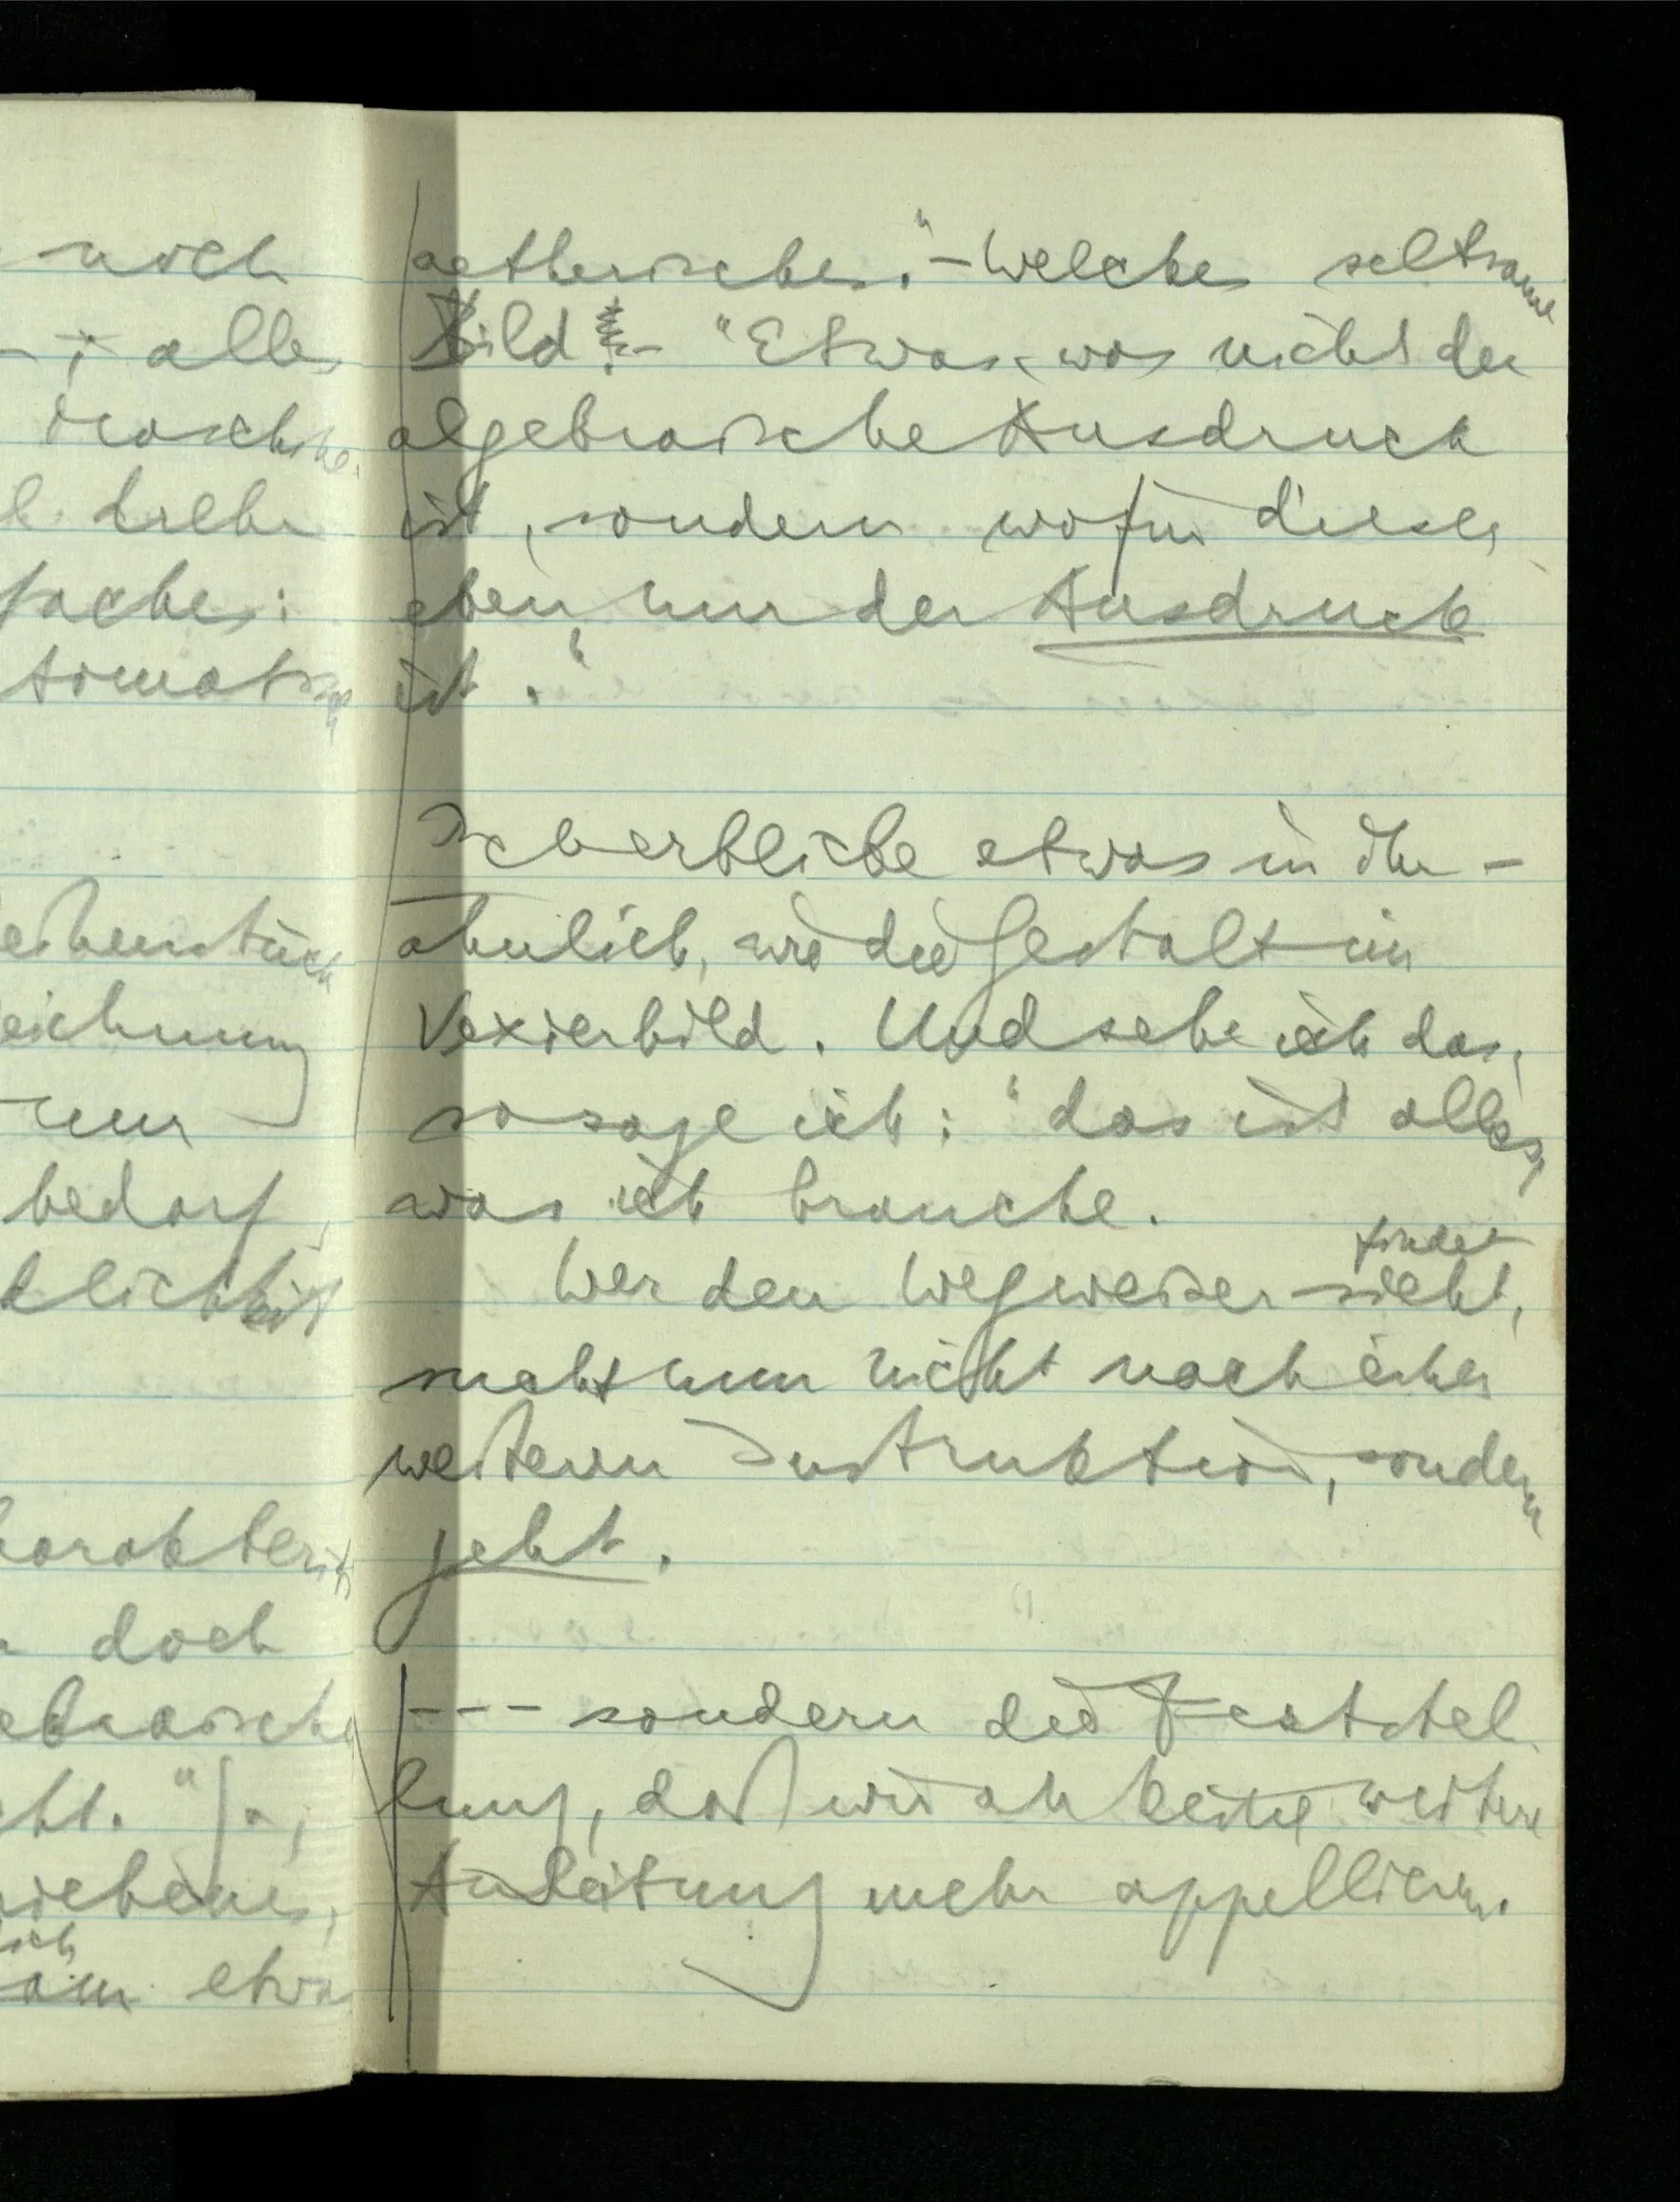 noch
alles
Maschine
l. drehe
sache:
automatisch
eibenstück
eichnung
nur
bedarf,
klichkeit
harakteris
doch
ebraische
cht." Ja,
riebenes,
ich
am etwas
aetherisches." – Welches seltsame
Bild! – "Etwas, was nicht der
algebraische Ausdruck
ist, sondern wofür dieser
eben nur der Ausdruck
ist."
Ich erblicke etwas in ihr –
ähnlich, wie die Gestalt im
Vexierbild. Und sehe ich das,
so sage ich: "das ist alles,
was ich brauche.
findet
Wer den Wegweiser sieht,
sucht nun nicht nach einer
weitern Instruktion, sondern
geht.
--- sondern die Feststel
lung, daß wir an keine weitere
Anleitung mehr appellieren.